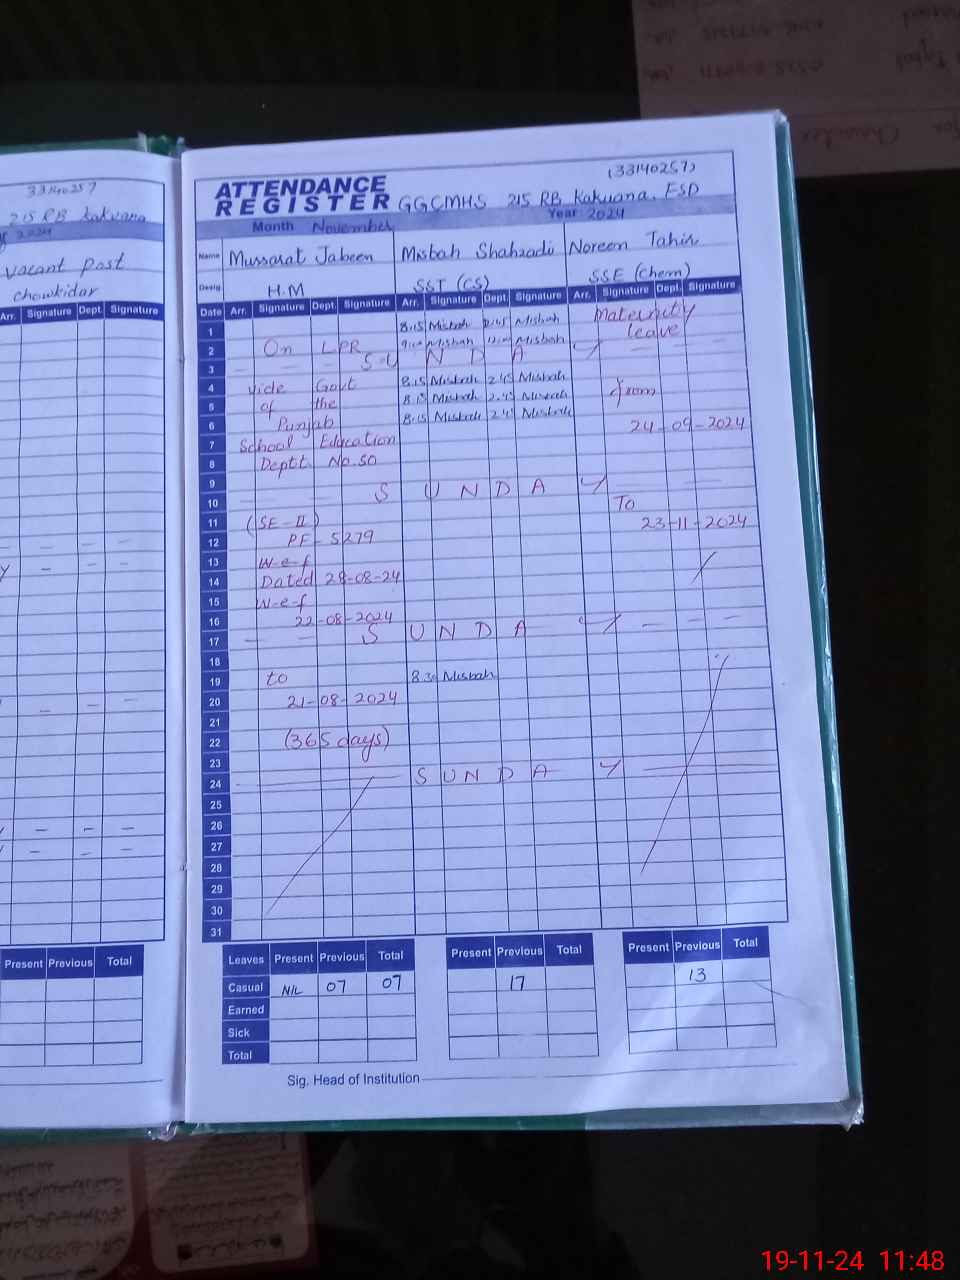 33140257
215 RB Kakuana
2024
vacant post
chowkidar
Arr. Signature Dept. Signature
Present Previous Total
(33140257)
ATTENDANCE
REGISTER GGCMHS 215 RB Kakuana, FSD
Month November Year 2024
Name Mussarat Jabeen Misbah Shahzadi Noreen Tahir
Desig. H.M SST (CS) SSE (Chem)
Date Arr. Signature Dept. Signature Arr. Signature Dept. Signature Arr. Signature Dept. Signature
1 8.15 Misbah Misbah Maternity
leave
2 On LPR Misbah Misbah
3 S U N D A Y
4 vide Govt 8.15 Misbah 2.45 Misbah
5 of the 8.15 Misbah 2.45 Misbah from
6 Punjab 8.15 Misbah 2.45 Misbah 24-09-2024
7 School Education
8 Deptt. No. SO
9
10 S U N D A Y
To
11 (SE-II) 23-11-2024
12 PF-5279
13 W-e-f
14 Dated 28-08-24
15 W-e-f
16 22-08-2024
17 S U N D A Y
18
19 to 8.30 Misbah
20 21-08-2024
21
22 (365 days)
23
24 S U N D A Y
25
26
27
28
29
30
31
Leaves Present Previous Total Present Previous Total Present Previous Total
Casual NIL 07 07 17 13
Earned
Sick
Total
Sig. Head of Institution
19-11-24 11:48